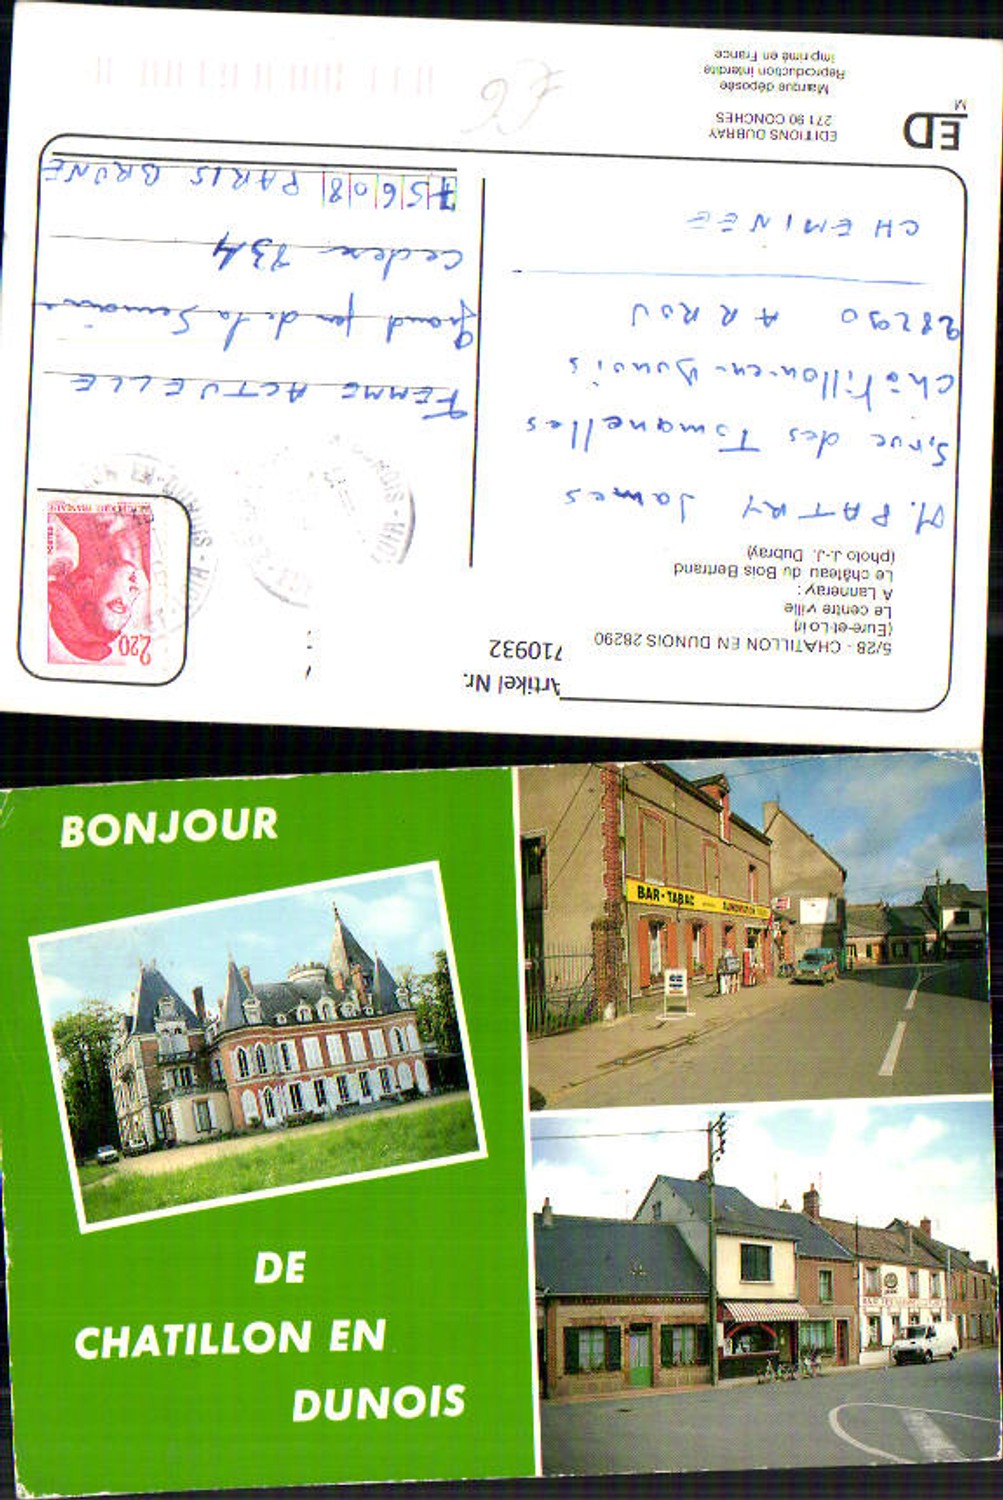 EDITIONS DUBRAY
27190 CONCHES
Marque déposée
Reproduction interdite
Imprimé en France
ED
M
5/28 - CHATILLON EN DUNOIS 28290
(Eure-et-Loir)
Le centre ville
A Lanneray :
Le château du Bois Bertrand
(photo J.-J. Dubray)
Artikel Nr.
710932
M. PATRY James
5, rue des Tomanelles
Châtillon-en-Dunois
28290 ARROU
CHEMINEE
2,20
POSTES
FEMME ACTUELLE
Grand jeu de la Semaine
Cedex 734
75608 PARIS BRUNE
BONJOUR
DE
CHATILLON EN
DUNOIS
BAR - TABAC
ALIMENTATION